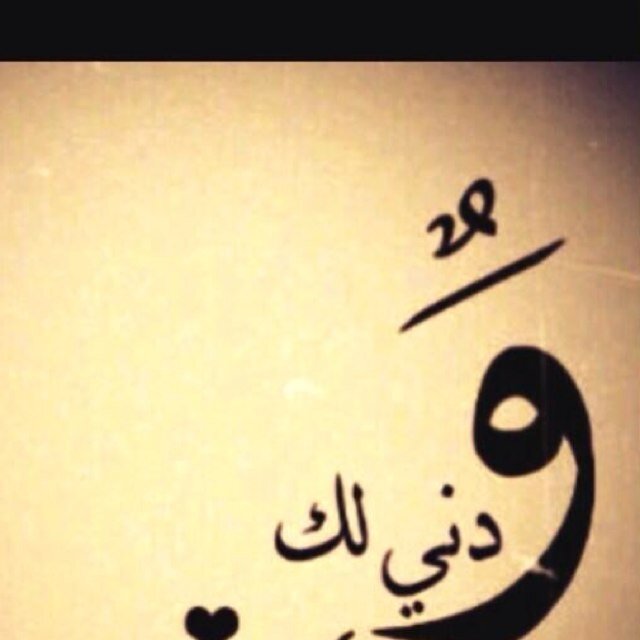 وَدني لك